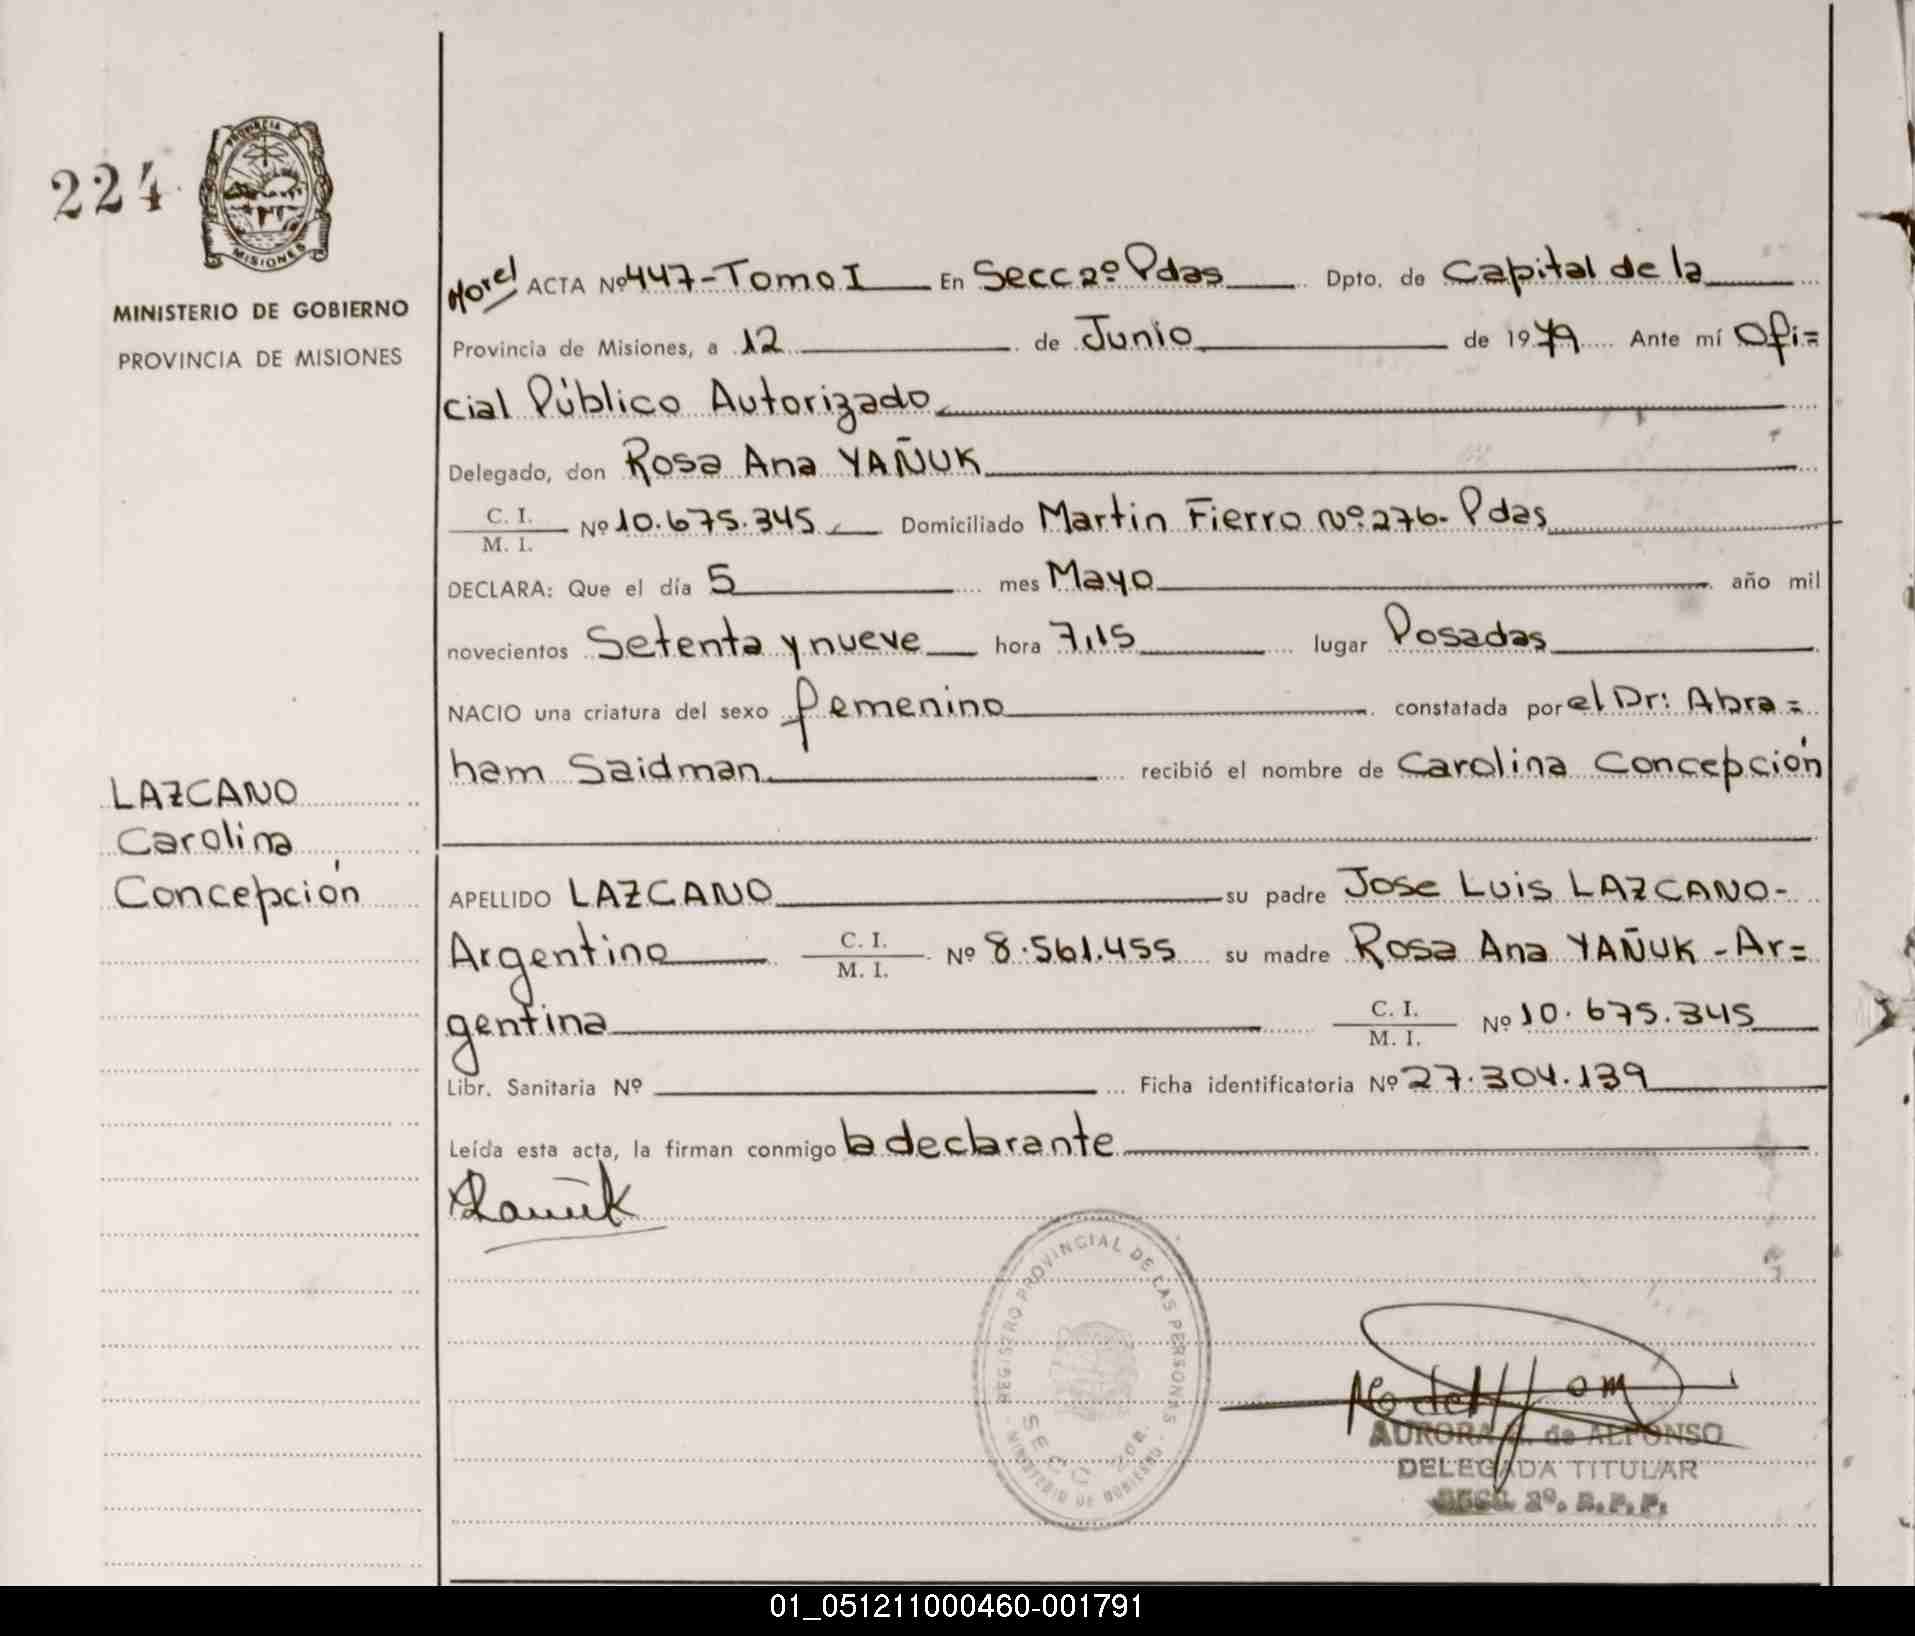 224
PROVINCIA DE
MISIONES
MINISTERIO DE GOBIERNO
PROVINCIA DE MISIONES
Morel ACTA Nº 447-Tomo I En Secc 2º Pdas Dpto. de Capital de la
Provincia de Misiones, a 12 de Junio de 1979 Ante mí Ofi=
cial Público Autorizado
Delegado, don Rosa Ana YAÑUK
C. I.
M. I. Nº 10.675.345 Domiciliado Martin Fierro Nº 276- Pdas
DECLARA: Que el día 5 mes Mayo año mil
novecientos Setenta y nueve hora 7,15 lugar Posadas
NACIO una criatura del sexo femenino constatada por el Dr: Abra=
ham Saidman recibió el nombre de Carolina Concepción
LAZCANO
Carolina
Concepción
APELLIDO LAZCANO su padre Jose Luis LAZCANO-
Argentino C. I. M. I. Nº 8.561.455 su madre Rosa Ana YAÑUK - Ar=
gentina C. I. M. I. Nº 10.675.345
Libr. Sanitaria Nº Ficha identificatoria Nº 27.304.139
Leída esta acta, la firman conmigo la declarante
REGISTRO PROVINCIAL DE LAS PERSONAS
MINISTERIO DE GOBIERNO
SECC
AURORA de ALFONSO
DELEGADA TITULAR
SECC. 2º. R.P.P.
01_051211000460-001791